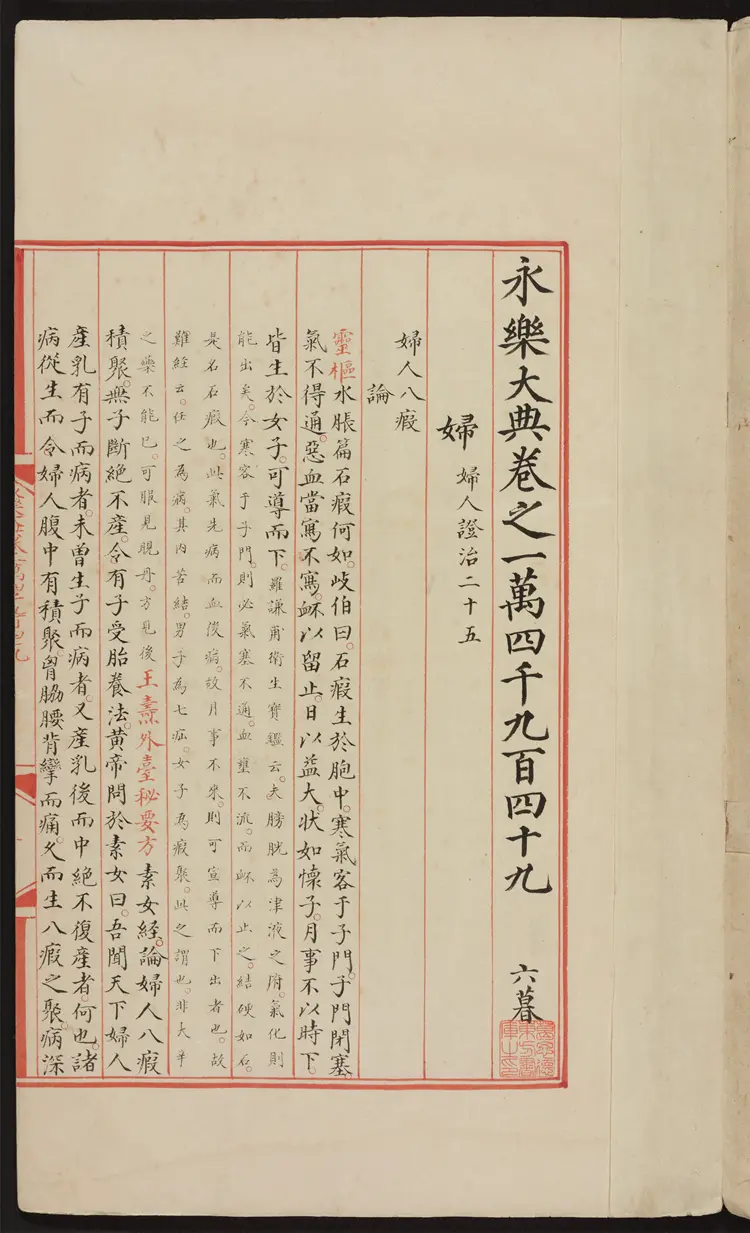 永樂大典卷之一萬四千九百四十九 六暮
婦 婦人證治二十五
婦人八瘕
論
靈樞水脹篇石瘕何如。歧伯曰。石瘕生於胞中。寒氣客于子門。子門閉塞
氣不得通。惡血當寫不寫。衃以留止。日以益大。狀如懷子。月事不以時下。
皆生於女子。可導而下。羅謙甫衛生寶鑑云。夫膀胱為津液之府。氣化則
能出矣。今寒客于子門。則必氣塞不通。血壅不流。而衃以止之。結硬如石。
是名石瘕也。此氣先病而血後病。故月事不來。則可宣導而下出者也。故
難經云。任之為病。其內苦結。男子為七疝。女子為瘕聚。此之謂也。非大辛
之藥不能已。可服見睍丹。方見後王燾外臺秘要方素女經。論婦人八瘕
積聚。無子斷絕不產。令有子受胎養法。黃帝問於素女曰。吾聞天下婦人
產乳有子而病者。未曾生子而病者。又產乳後而中絕不復產者。何也。諸
病從生而令婦人腹中有積聚。胷脇腰背攣而痛。久而生八瘕之聚。病深